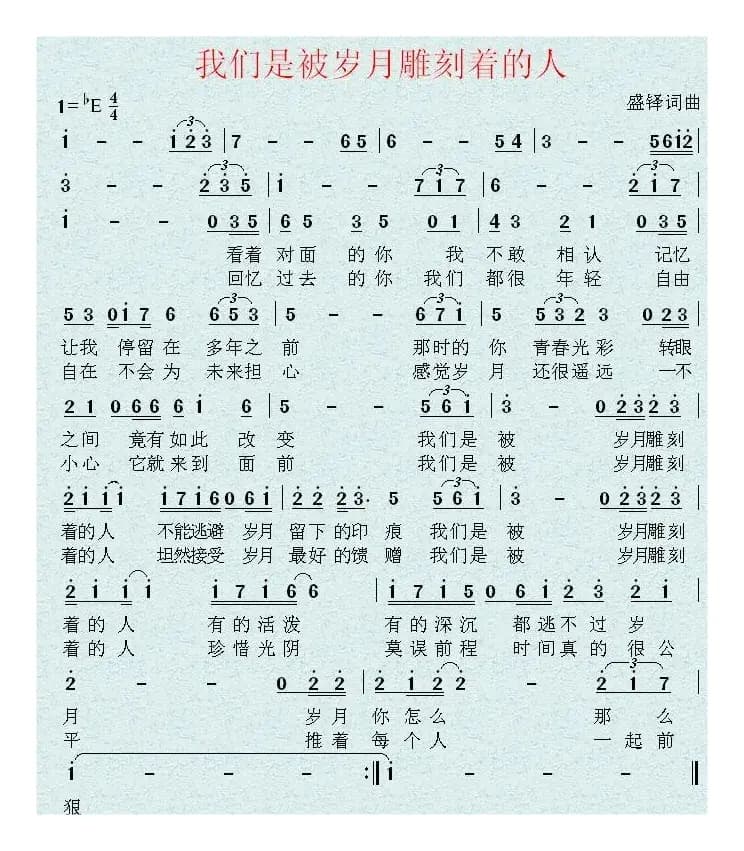 我们是被岁月雕刻着的人
1=♭E 4/4
盛铎词曲
i - - i 2 3 | 7 - - 6 5 | 6 - - 5 4 | 3 - - 5 6 i 2 |
3 - - 2 3 5 | i - - 7 1 7 | 6 - - 2 1 7 |
i - - 0 3 5 | 6 5 3 5 0 1 | 4 3 2 1 0 3 5 |
看着 对面 的你 我 不敢 相认 记忆
回忆 过去 的你 我们 都很 年轻 自由
5 3 0 i 7 6 6 5 3 | 5 - - 6 7 1 | 5 5 3 2 3 0 2 3 |
让我 停留在 多年之 前 那时的 你 青春光彩 转眼
自在 不会为 未来担 心 感觉岁 月 还很遥远 一不
2 1 0 6 6 6 i 6 | 5 - - 5 6 i | 3 - 0 2 3 2 3 |
之间 竟有如此 改 变 我们是 被 岁月雕刻
小心 它就来到 面 前 我们是 被 岁月雕刻
2 i i i i 7 i 6 0 6 i | 2 2 2 3· 5 5 6 i | 3 - 0 2 3 2 3 |
着的人 不能逃避 岁月 留下的印 痕 我们是 被 岁月雕刻
着的人 坦然接受 岁月 最好的馈 赠 我们是 被 岁月雕刻
2 i i i i 7 i 6 6 | i 7 i 5 0 6 i 2 3 2 i |
着的人 有的活泼 有的深沉 都逃不过岁
着的人 珍惜光阴 莫误前程 时间真的很公
2 - - 0 2 2 | 2 i 2 2 - 2 i 7 |
月 岁月 你怎么 那么
平 推着 每个人 一起前
i - - - :‖ i - - - ‖
狠